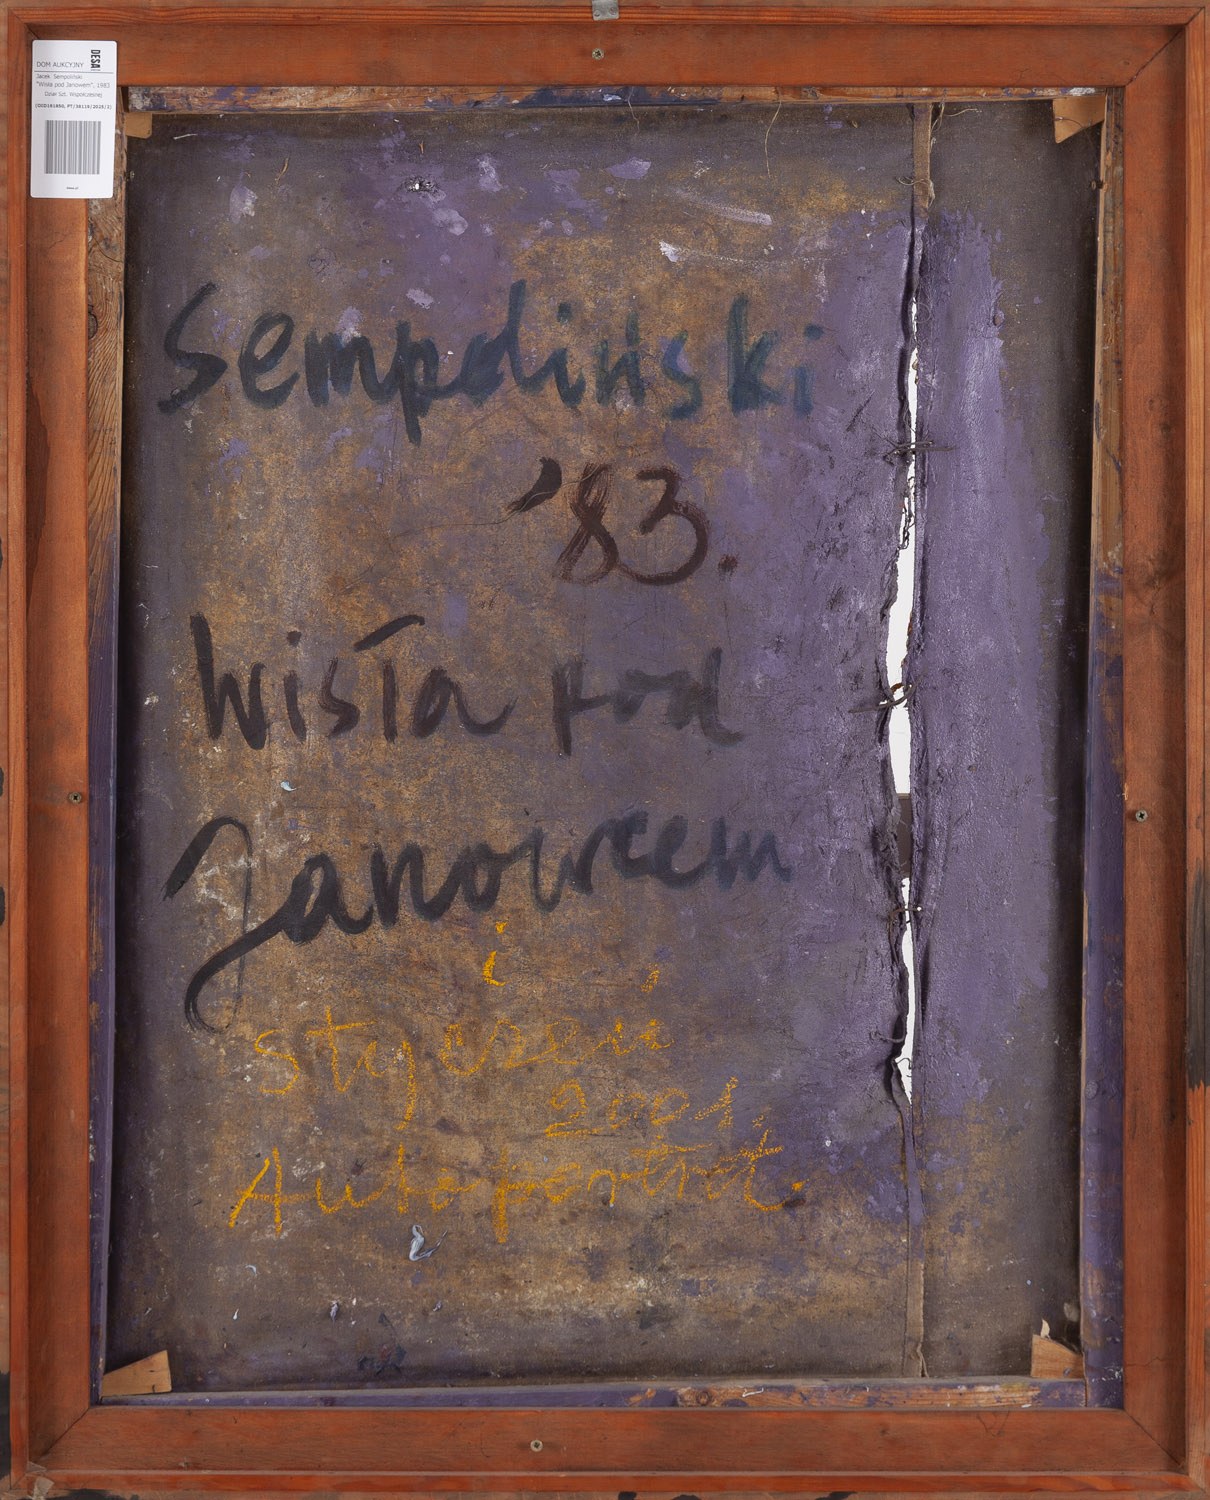 DOM AUKCYJNY DESA
Jacek Sempoliński
"Wisła pod Janowem", 1983
Dział Szt. Współczesnej
Sempoliński
'83.
Wisła pod
Janowcem
i
styczeń
2001.
Autoportret.